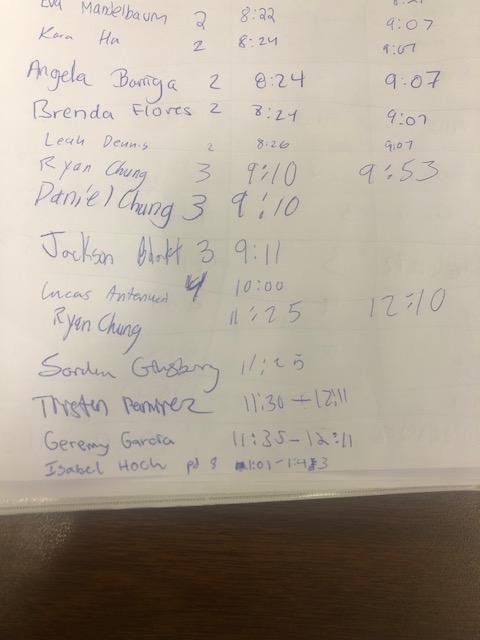 Eva Mandelbaum 2 8:22 9:07
Kara Ha 2 8:24 9:07
Angela Barriga 2 8:24 9:07
Brenda Flores 2 8:24 9:07
Leah Dennis 2 8:26 9:07
Ryan Chung 3 9:10 9:53
Daniel Chung 3 9:10
Jackson 3 9:11
Lucas 4 10:00
Ryan Chung 11:25 12:10
11:25
Ramirez 11:30 - 12:11
Geremy Garcia 11:35 - 12:11
Isabel Hoch pd 8 1:01 - 1:43